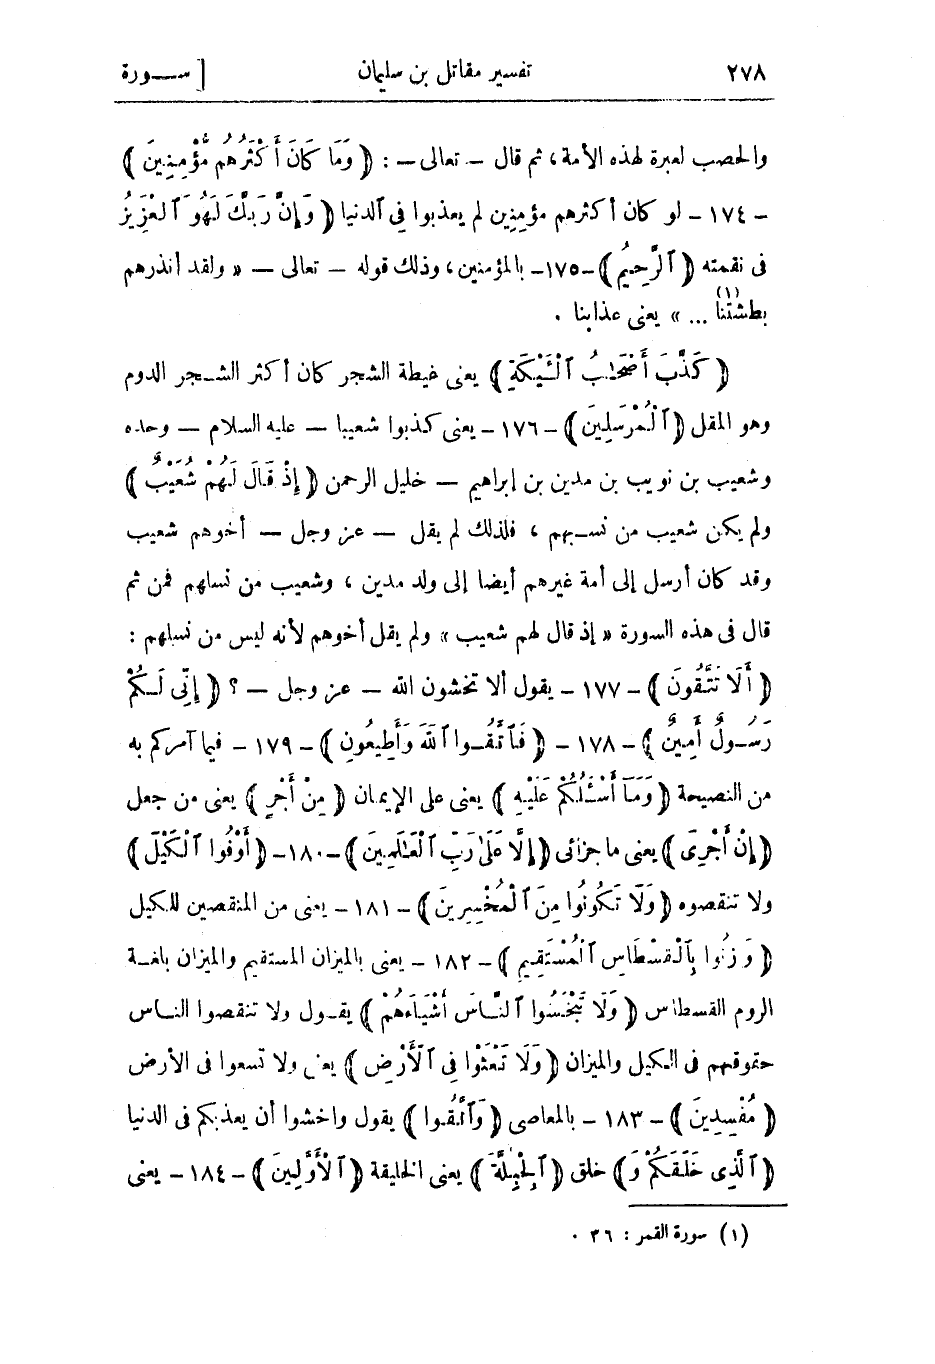 ٢٧٨ تفسير مقاتل بن سليمان [ سـورة
والحصب لعبرة لهذه الأمة، ثم قال – تعالى – : ﴿ وَمَا كَانَ أَكْثَرُهُم مُّؤْمِنِينَ ﴾
– ١٧٤ – لو كان أكثرهم مؤمنين لم يعذبوا فى الدنيا ﴿ وَإِنَّ رَبَّكَ لَهُوَ ٱلْعَزِيزُ
فى نقمته ﴿ ٱلرَّحِيمُ ﴾ – ١٧٥ – بالمؤمنين، وذلك قوله – تعالى – « ولقد أنذرهم
بطشتنا (١) ... » يعنى عذابنا .
﴿ كَذَّبَ أَصْحَٰبُ ٱلْـَٔيْكَةِ ﴾ يعنى غيطة الشجر كان أكثر الشـجر الدوم
وهو المقل ﴿ ٱلْمُرْسَلِينَ ﴾ – ١٧٦ – يعنى كذبوا شعيبا – عليه السلام – وحده
وشعيب بن نويب بن مدين بن إبراهيم – خليل الرحمن ﴿ إِذْ قَالَ لَهُمْ شُعَيْبٌ ﴾
ولم يكن شعيب من نسـبهم ، فلذلك لم يقل – عز وجل – أخوهم شعيب
وقد كان أرسل إلى أمة غيرهم أيضا إلى ولد مدين ، وشعيب من نسلهم فمن ثم
قال فى هذه السورة « إذ قال لهم شعيب » ولم يقل أخوهم لأنه ليس من نسلهم :
﴿ أَلَا تَتَّقُونَ ﴾ – ١٧٧ – يقول ألا تخشون الله – عز وجل – ؟ ﴿ إِنِّى لَـكُمْ
رَسُـولٌ أَمِينٌ ﴾ – ١٧٨ – ﴿ فَٱتَّقُـوا ٱللَّهَ وَأَطِيعُونِ ﴾ – ١٧٩ – فيما آمركم به
من النصيحة ﴿ وَمَآ أَسْـَٔلُكُمْ عَلَيْهِ ﴾ يعنى على الإيمان ﴿ مِنْ أَجْرٍ ﴾ يعنى من جعل
﴿ إِنْ أَجْرِىَ ﴾ يعنى ما جزائى ﴿ إِلَّا عَلَىٰ رَبِّ ٱلْعَٰلَمِينَ ﴾ – ١٨٠ – ﴿ أَوْفُوا ٱلْكَيْلَ ﴾
ولا تنقصوه ﴿ وَلَا تَكُونُوا مِنَ ٱلْمُخْسِرِينَ ﴾ – ١٨١ – يعنى من المنقصين للكيل
﴿ وَزِنُوا بِٱلْقِسْطَاسِ ٱلْمُسْتَقِيمِ ﴾ – ١٨٢ – يعنى بالميزان المستقيم والميزان بلغـة
الروم القسطاس ﴿ وَلَا تَبْخَسُوا ٱلنَّـاسَ أَشْيَآءَهُمْ ﴾ يقـول ولا تنقصوا النـاس
حقوقهم فى الكيل والميزان ﴿ وَلَا تَعْثَوْا فِى ٱلْأَرْضِ ﴾ يعنى ولا تسعوا فى الأرض
﴿ مُفْسِدِينَ ﴾ – ١٨٣ – بالمعاصى ﴿ وَٱتَّقُـوا ﴾ يقول واخشوا أن يعذبكم فى الدنيا
﴿ ٱلَّذِى خَلَقَكُمْ وَ ﴾ خلق ﴿ ٱلْجِبِلَّةَ ﴾ يعنى الخليقة ﴿ ٱلْأَوَّلِينَ ﴾ – ١٨٤ – يعنى
(١) سورة القمر : ٣٦ .